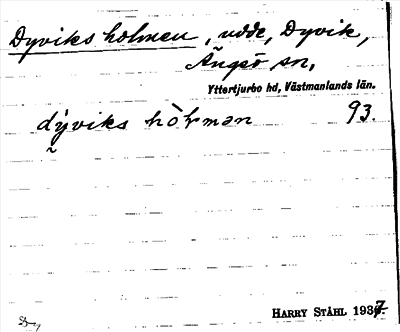 Dyviksholmen, udde, Dyvik,
Ängsö sn,
Yttertjurbo hd, Västmanlands län.
dyviks hòlman 93.
HARRY STÅHL 1937.
Dy